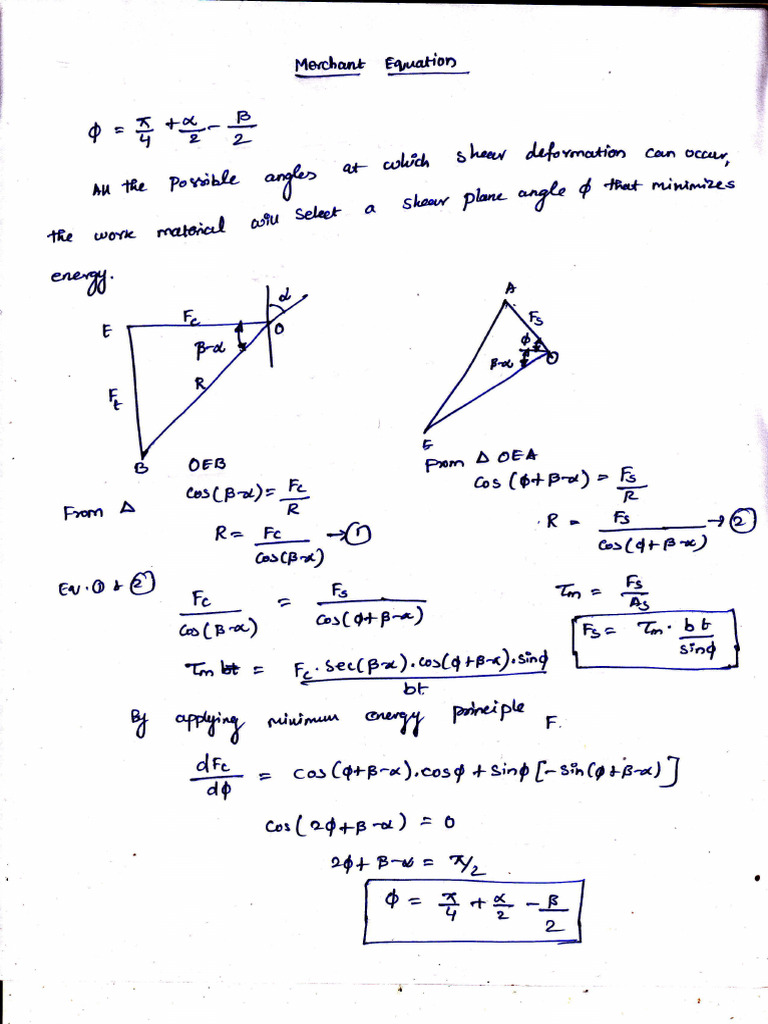 Merchant Equation
ϕ = π/4 + α/2 - β/2
All the Possible angles at which shear deformation can occur,
the work material will select a shear plane angle ϕ that minimizes
energy.
α
E Fc O
β-α
R
Ft
B
A
Fs
ϕ
O
β-α
E
From Δ OEB
cos(β-α) = Fc/R
R = Fc/cos(β-α) → ①
From Δ OEA
cos(ϕ+β-α) = Fs/R
R = Fs/cos(ϕ+β-α) → ②
Eq. ① & ②
Fc/cos(β-α) = Fs/cos(ϕ+β-α)
τm = Fs/As
Fs = τm · bt/sinϕ
τm = Fc·sec(β-α)·cos(ϕ+β-α)·sinϕ/bt
By applying minimum energy principle F.
dFc/dϕ = cos(ϕ+β-α)·cosϕ + sinϕ[-sin(ϕ+β-α)]
cos(2ϕ+β-α) = 0
2ϕ+β-α = π/2
ϕ = π/4 + α/2 - β/2